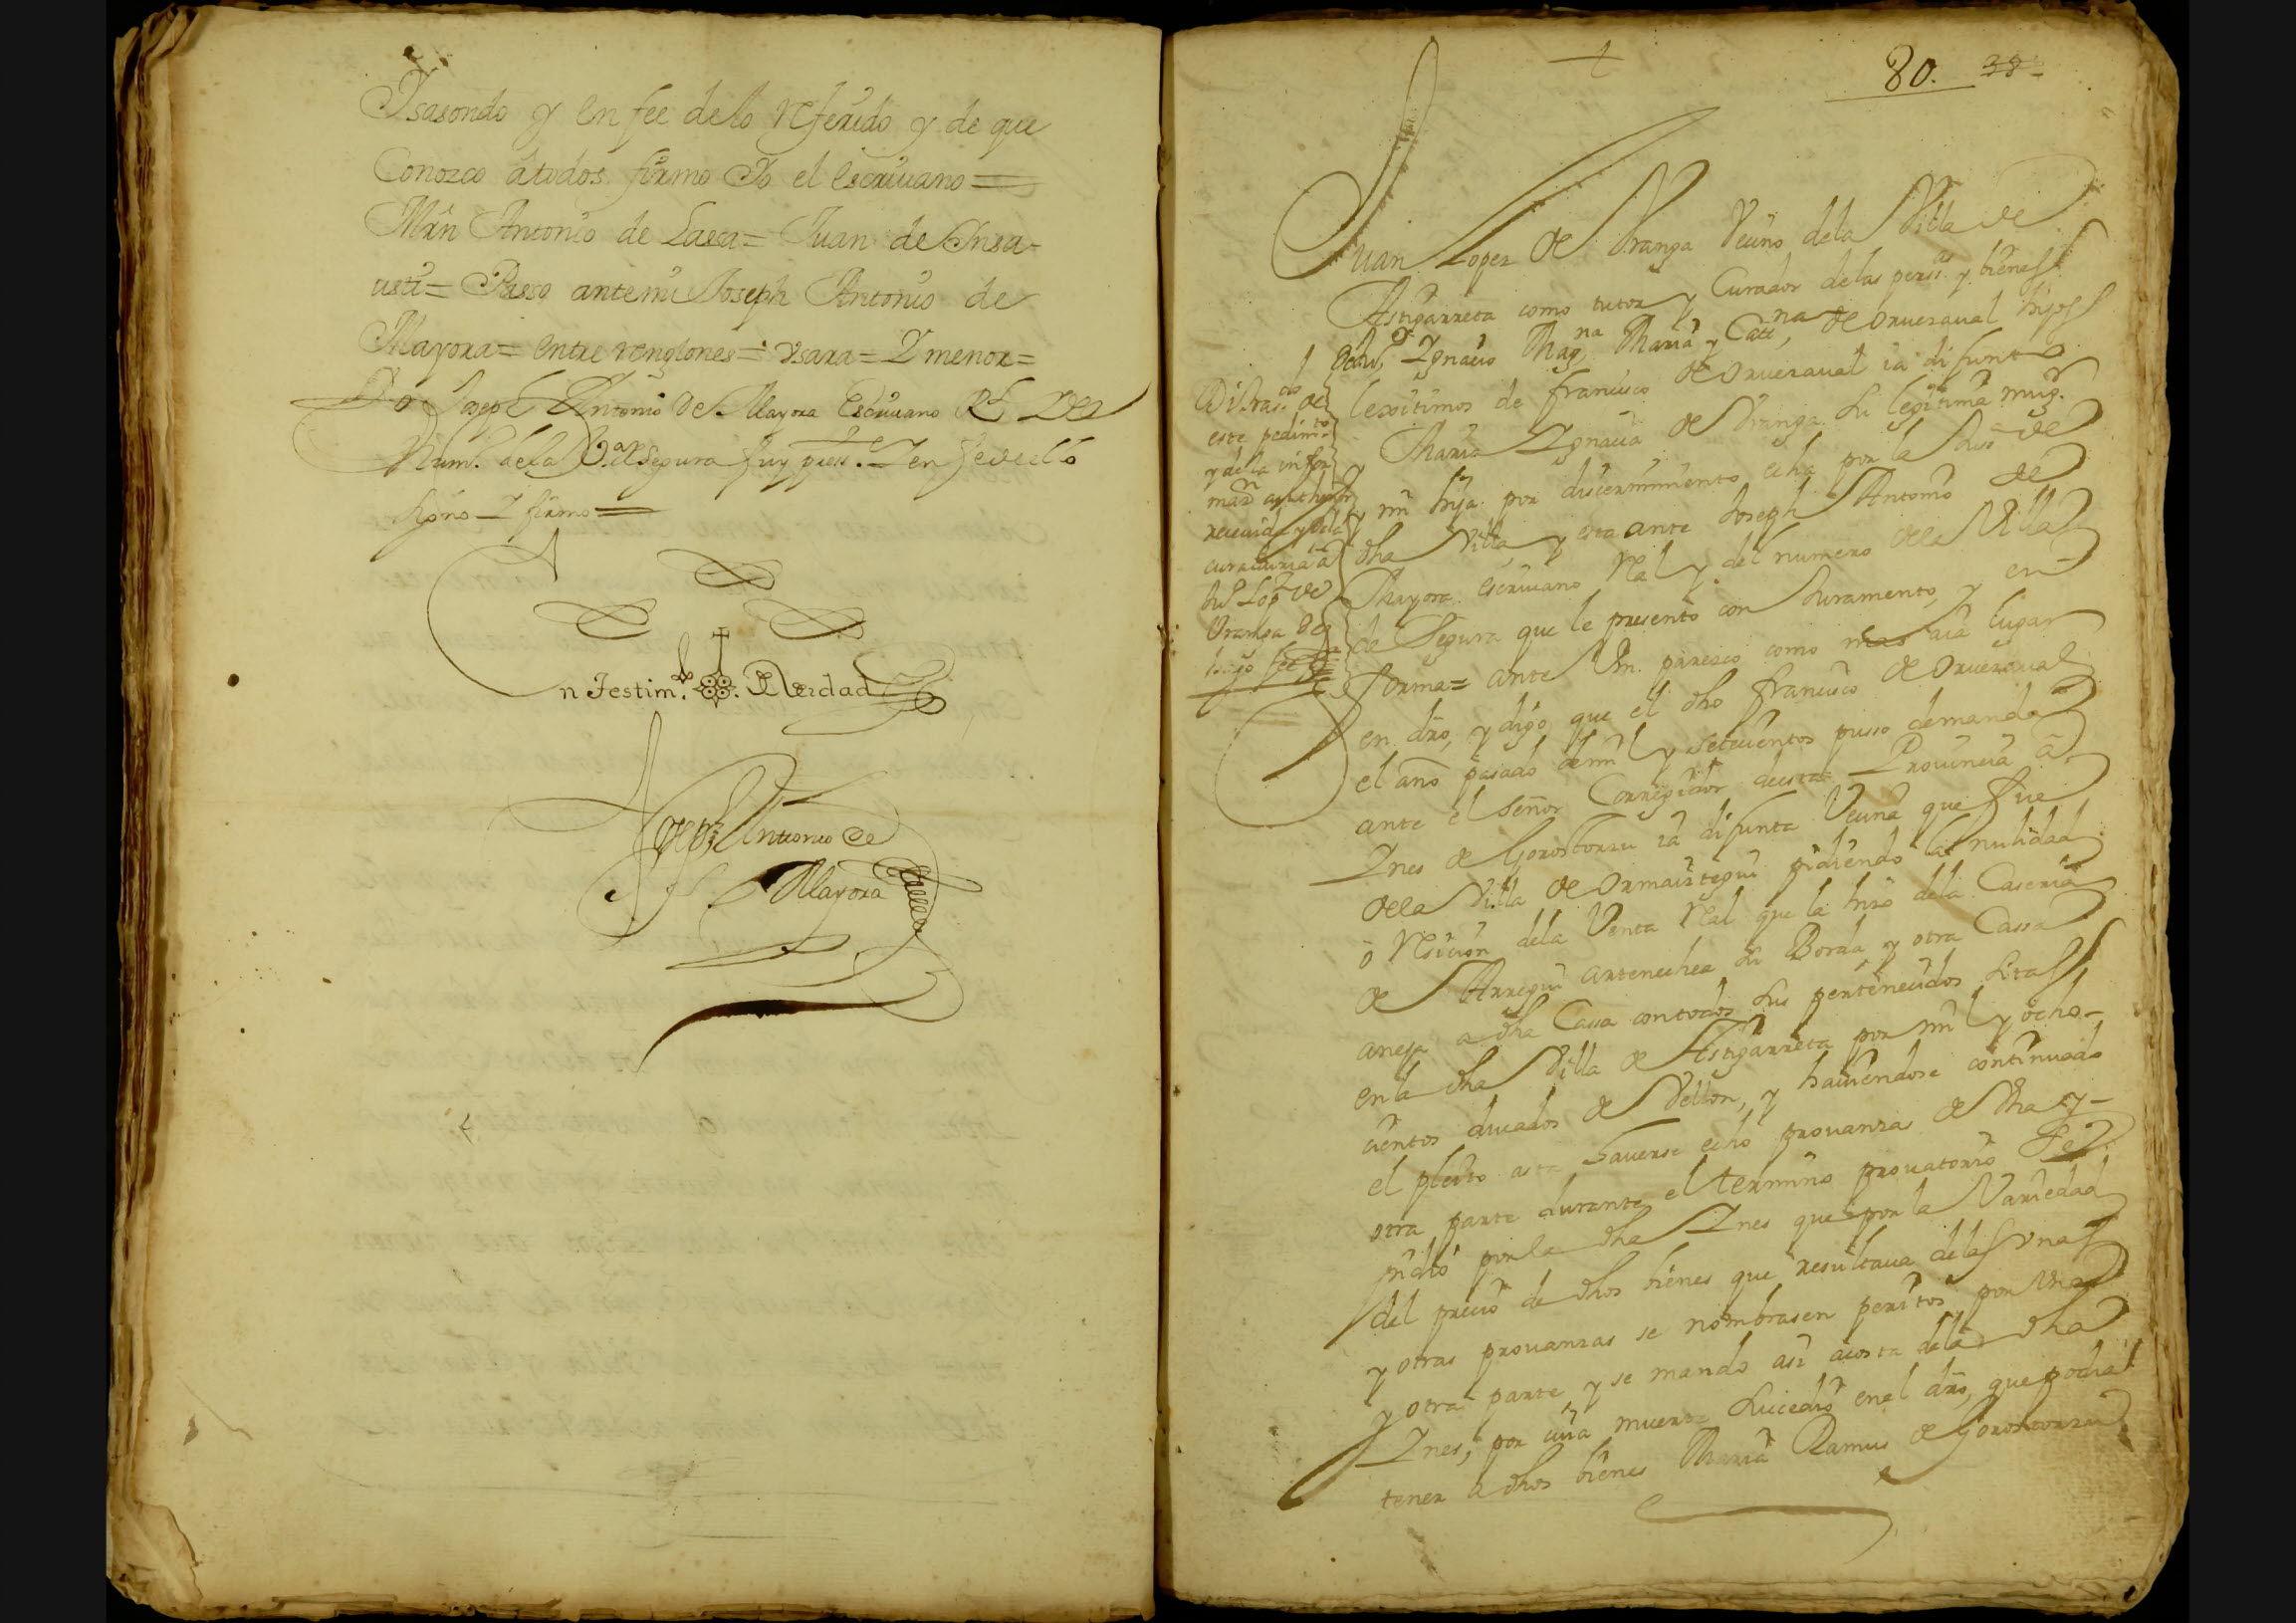 Ysasondo y en fee delo referido y de que
Conozco átodos firmo Yo el escriuano =
Mrn Antonio de Lasca = Juan de Insa-
usti = Passo antemi Joseph Antonio de
Mayora = entre renglones = vsara = Y menor =
Yo Joseph Antonio de Mayora Escriuano Rl Y del
Num.º dela Va de Segura fuy press.te Y en fee de ello
signo Y firmo =
En Testim.º de Verdad
Joseph Antonio de
Mayora
80. 38
Juan Lopez de Vranga Vecino dela Villa de
Astigarreta como tutor y Curador delas perss.as y bienes
de Ygnacio Mag.na Maria y Cat.na de Oruesaual hijos
lexitimos de francisco de Oruesaual ia difunto
y Maria Ygnacia de Vranga su legitima mug.r
y mi hija por discernimiento echo por la Jus.a de
dha Villa y esta ante Joseph Antonio de
Mayora escriuano Ral y del numero dela Villa
de Segura que le presento con Juramento, y en
forma = ante Vm. paresco como mas aia lugar
en dro, y digo que el dho francisco de Oruesaual
el año pasado de mil y setecientos pusso demanda
ante el señor Corregidor de esta Prouincia á
Ynes de Gorostorzu ia difunta Vecina que fue
dela Villa de Ormaiztegui pidiendo la nulidad
ó Resicion dela Venta Ral que la hizo dela Caseria
de Arregui artenechea su Borda, y otra Cassa
aneja a dha Cassa contodos sus pertenecidos sitas
enla dha Villa de Astigarreta por mil y ocho-
cientos ducados de Vellon, y hauiendose continuado
el pleito asta hauerse echo prouanzas de dha y
otra parte durante el termino prouatorio Pe-
pidio por la dha Ynes que por la Variedad
del precio de dhos bienes que resultaua delas vnas
y otras prouanzas se nombrasen peritos por vna
y otra parte, y se mando asi acosta dela dha
Ynes, por cuia muerte sucedio enel dro, que podia
tener a dhos bienes Maria Ramus de Gorostorzu
Di tras.do de
este pedim.to
y dela infor
maz.n
receuida y dela
curaduria á
Ju.º Lop.z de
Vranga Deq.
hago fee